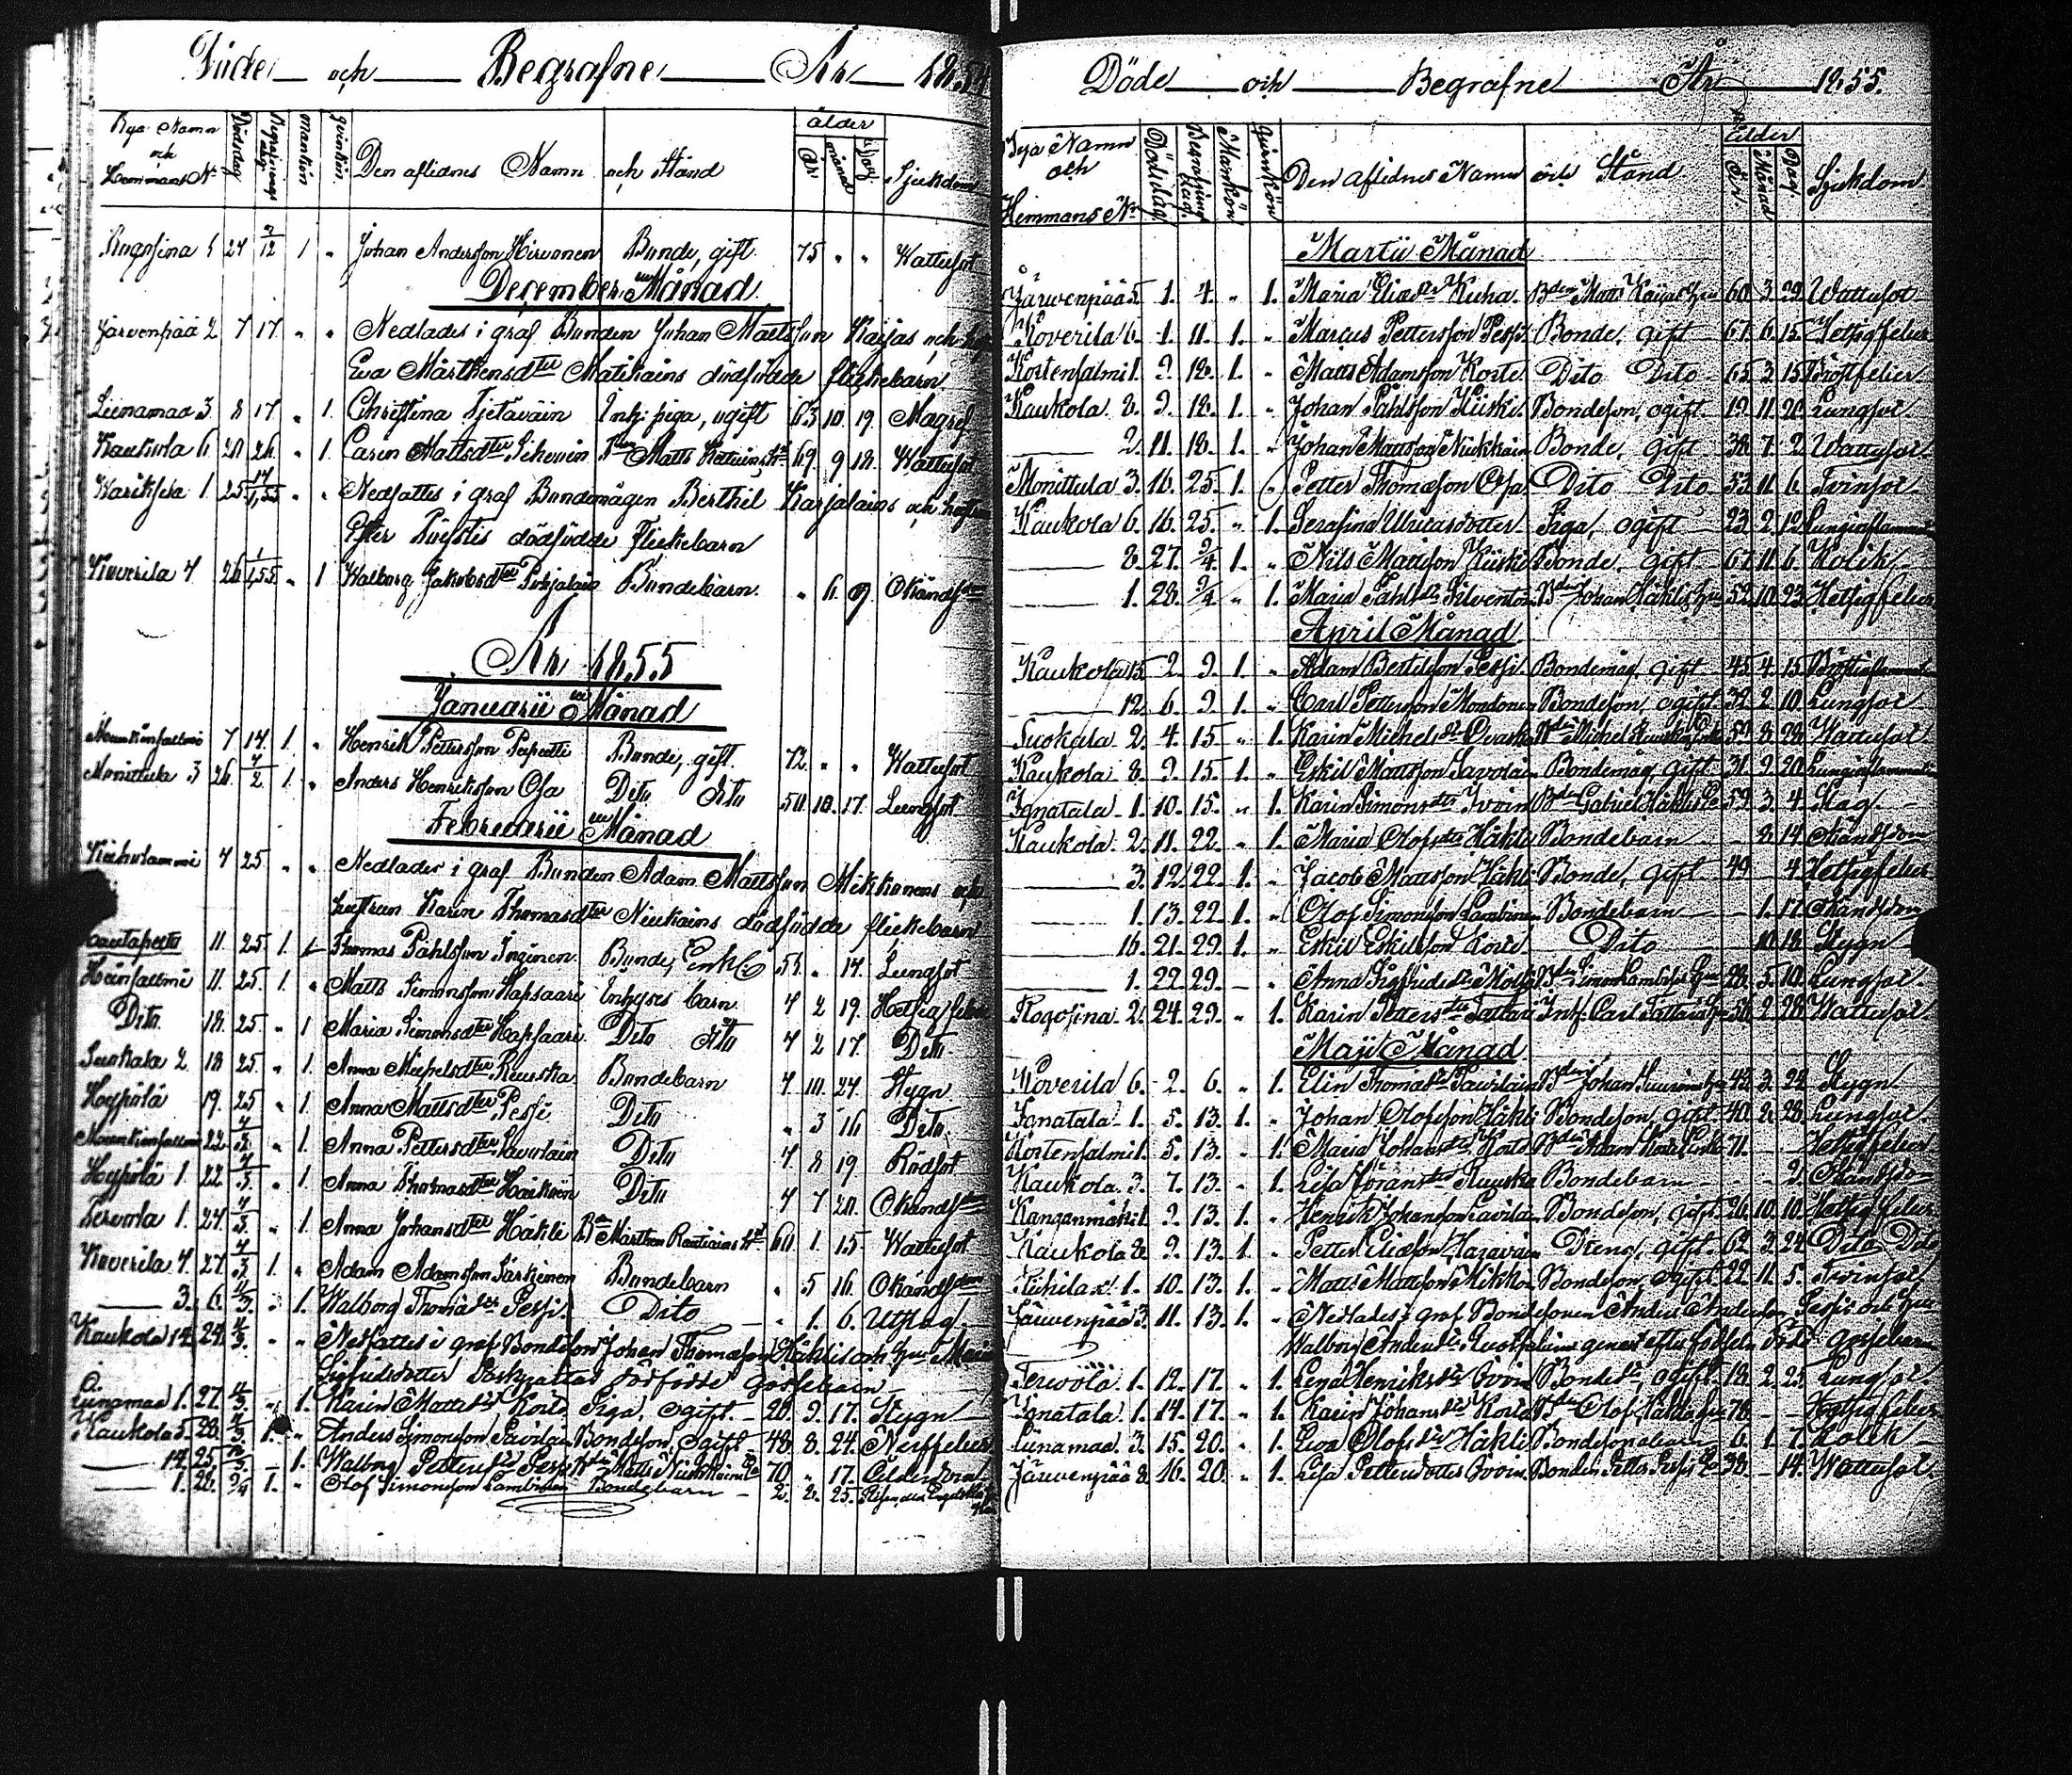 Döde och Begrafne År 1854
Bya Namn och Hemmans No Dödsdag Begrafnings dag Mankön Qvinkön Den aflidnes Namn och Stånd ålder År månad Dag Sjukdom
Rogosina 5 24 3/12 1 „ Johan Andersson Hirvonen Bonde, gift 75 „ „ Wattusot
December Månad
Järvenpää 2 7 17 „ „ Nedlades i graf Bonden Johan Mattsson Kaijas och
Ewa Mårthensdter Matikains dödfödde flickebarn
Liinamaa 3 8 17 „ 1. Christina Tjetäväin Inh: piga, ogift 63 10 19 Magref
Kaukola 6 20 26 „ 1. Carin Mattsdter Matts 69. 9 18. Wattusot
1. 25 14/1,55 „ „ Nedsattes i graf Bondemågen Berthil Karjalains och
dödfödde flickebarn
Koverila 4 26 1/1,55 „ 1 Walborg Jakobsdter Pohjalain Bondebarn „ 6. 9. Okänd
År 1855
Januarii Månad
7 14. 1. „ Henrik Pettersson Bonde, gift. 72. „ „ Wattusot
Monittula 3 26. 4/2 1. „ Anders Henriksson Opa Dito Dito 50. 10. 17. Lungsot
Februarii Månad
4 25. „ „ Nedlades i graf Bonden Adam Mattsson Mikkonens och
hustrun Karin Thomasdter Niukains dödfödde flickebarn
11. 25. 1. Thomas Påhlsson Inginen Bonde, Enkl. „ 14. Lungsot
11. 25. 1. „ Matts Simonsson Hapsaari Inhyses barn 4 2 19. Hetsig feber
Dito 18. 25. „ 1 Maria Simonsdter Hapsaari Dito Dito 4 2 17. Dito
Suokala 2 18 25. „ 1. Anna Michelsdter Ruuska Bondebarn 4. 10. 24. Stygn
Heypölä 19. 25 „ 1. Anna Mattsdter Pessi Dito „ 3 16 Dito
22. 4/3. „ 1. Anna Pettersdter Saurlain Dito 4 8 19. Rödsot
Heypölä 1. 22 4/3. „ 1 Anna Thomasdter Dito 4 7 20. Okänd
Tervola 1. 24. 4/3. „ 1. Anna Johansdter Häkli Mårthen 60. 1. 15. Wattusot
Koverila 4. 27. 4/3 1. „ Adam Adamsson Särkinen Bondebarn „ 5 16. Okänd
3. 6. 4/3. „ 1. Walborg Thomasdter Pessi Dito „ 1. 6. Utslag
Kaukola 14. 24. 4/3. „ „ Nedsattes i graf Bondeson Johan Thomasson Häklis och hu Maria
Sigfridsdotter dödfödde gossebarn
Liinamaa 1. 27. 4/3. „ 1. Karin Mattsdter Korte Piga, ogift 20. 9. 17. Stygn
Kaukola 5. 28. 4/3 1. „ Anders Simonsson Savilain Bondeson, ogift 48. 8. 24. Nerffeber
14. 25. „ 1. Walborg Pettersdter Pessi Matts 70 „ 17. Ålderdom
1. 28. 9/4 1. „ Olof Simonsson Lambinen Bondebarn 2. 2. 25.
Döde och Begrafne År 1855.
Bya Namn och Hemmans No Dödsdag Begrafnings dag. Mankön Qvinkön Den aflidnes Namn och Stånd ålder År. Månad Dag. Sjukdom
Martii Månad
Järwenpää 5. 1. 4. „ 1. Maria Eliasdter Kuha. Bden Matts Kaijas hu 60. 3. 29. Wattusot
Koverila 6. 1. 11. 1. „ Marcus Pettersson Pessi. Bonde, gift 67. 6. 15. Hetsigfeber
Kortensalmi 1. 9. 12. 1. „ Matts Adamsson Korte Dito Dito 65. 3. 15. Bröstfeber
Kaukola. 8. 9. 18. 1. „ Johan Påhlsson Kiiski. Bondeson, ogift 19. 11. 20. Lungsot
2. 11. 18. 1. „ Johan Mattsson Niukkain Bonde, gift 38. 7. 2. Wattusot
Monittula 3. 16. 25. 1. „ Petter Thomasson Opa. Dito Dito 53. 11. 6. Tvinsot
Kaukola 6. 16. 25. „ 1. Serafina Ulricasdotter. Piga, ogift 23. 2. 19. Lunginflammat
8. 27. 9/4. 1. „ Nils Mattsson Kiiski Bonde, gift 67. 11. 6. Kolik
1. 28. 9/4. „ 1. Maria Påhlsdter Silventoin Bden Johan Häklis hu 52. 10. 23. Hetsigfeber
April Månad
Kaukola 15. 2. 9. 1. „ Adam Bertilsson Pessi. Bondemåg, gift 45. 4. 15.
12. 6. 9. 1. „ Carl Pettersson Mondonen Bondeson, ogift 32. 2. 10. Lungsot
Suokala 2. 4. 15. „ 1. Karin Michelsdter Ovaska Michel Ruuskas 59. 8. 28. Wattusot
Kaukola 8. 9. 15. 1. „ Eskil Mattsson Savolain Bondemåg, gift 31. 9. 20. Lunginflammation
Ignatala 1. 10. 15. „ 1. Karin Simonsdter Ivoin Bden Gabriel Häklis 59. 3. 4. Slag.
Kaukola. 2. 11. 22. „ 1. Maria Olofsdter Häkli Bondebarn - 8. 14. Okändsdom
3. 12. 22. 1. „ Jacob Mattsson Häkli Bonde, gift 49 - 4. Hetsigfeber
1. 13. 22. 1. „ Olof Simonsson Lambinen Bondebarn - 1. 17. Okändsdom
16. 21. 29. 1. „ Eskil Eskilsson Korte. Dito 10. 18. Stygn
1. 22. 29. - „ Anna Sigfridsdter Bden Simon Lambins hu 28. 5. 10. Lungsot.
Rogosina. 2. 24. 29. „ 1. Karin Pettersdter Tattari Inh. Carl Tattaris hu 56. 2. 28. Wattusot
Maji Månad
Koverila 6. 2. 6. „ 1. Elin Thomasdter Saurlain Bden Johan hu 43. 3. 22. Stygn
Ignatala 1. 5. 13. 1. „ Johan Olofsson Häkli Bondeson, gift 40. 2. 28. Lungsot
Kortensalmi 1. 5. 13. „ 1. Maria Johansdter Korte Bden Adam Kortes Enka 71. - Hetsigfeber
Kaukola. 3. 7. 13. „ 1. Lisa Göransdter Ruuska Bondebarn - - 2.
Kanganmäki 1. 9. 13. 1. „ Henrik Johansson Savilain Bondeson, gift 26. 10. 10. Hetsigfeber
Kaukola 2. 9. 13. 1. „ Petter Eliasson Karavain Dreng, gift 62. 3. 24. Dito Dito
1. 10. 13. 1. „ Matts Mattsson Mikkon. Bondeson, ogift 22. 11. 5. Tvinsot
Järwenpää 3. 11. 13. 1. „ Nedlades i graf Bondesonen Anders Andersson Pessis och hu
Walborg Andersdter genast efter födseln död gossebarn
Tervola. 1. 12. 17. „ 1. Lena Henriksdter Ovoin Bondedter, ogift 18. 2. 25. Lungsot
Ignatala. 1. 14. 17. „ 1. Karin Johansdter Korte Olof hu 78. - Hetsigfeber
Liinamaa. 3. 15. 20. „ 1. Ewa Olofsdter Häkli Bondesonsbarn 6. 1. 7. Kolik
Järwenpää 8. 16. 20. „ 1. Lisa Pettersdotter Ovoin. Bonden Petter Pessis hu 38. - 14. Wattusot